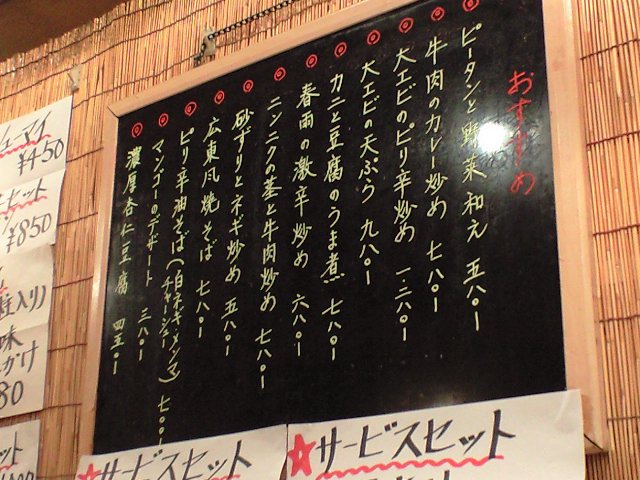 おすすめ
ピータンと野菜和え 五八〇-
牛肉のカレー炒め 七八〇-
大エビのピリ辛炒め 一.二八〇-
大エビの天ぷら 九八〇-
カニと豆腐のうま煮 七八〇-
春雨の激辛炒め 六八〇-
ニンニクの茎と牛肉炒め 七八〇-
砂ずりとネギ炒め 五八〇-
広東風焼そば 七八〇-
ピリ辛油そば(白ネギ・メンマ チャーシュー) 七〇〇-
マンゴーのデザート 三八〇-
濃厚杏仁豆腐 四五〇-
ューマイ
¥450
セット
¥850
粒入り)
味
かけ
80
ット
☆サービスセット
☆サービスセット